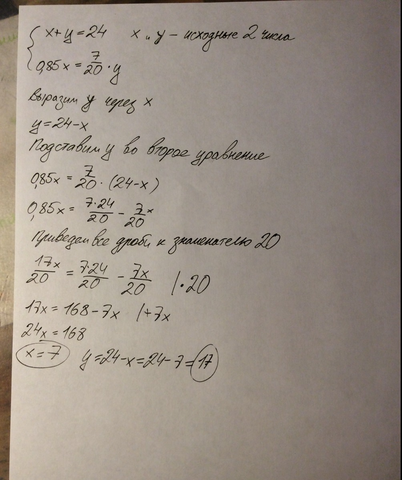 x+y=24 x и y – исходные 2 числа
0,85x = 7/20 · y
Выразим y через x
y=24-x
Подставим y во второе уравнение
0,85x = 7/20 · (24-x)
0,85x = 7·24/20 - 7x/20
Приведем все дроби к знаменателю 20
17x/20 = 7·24/20 - 7x/20 |·20
17x = 168-7x |+7x
24x=168
x=7 y=24-x=24-7=17